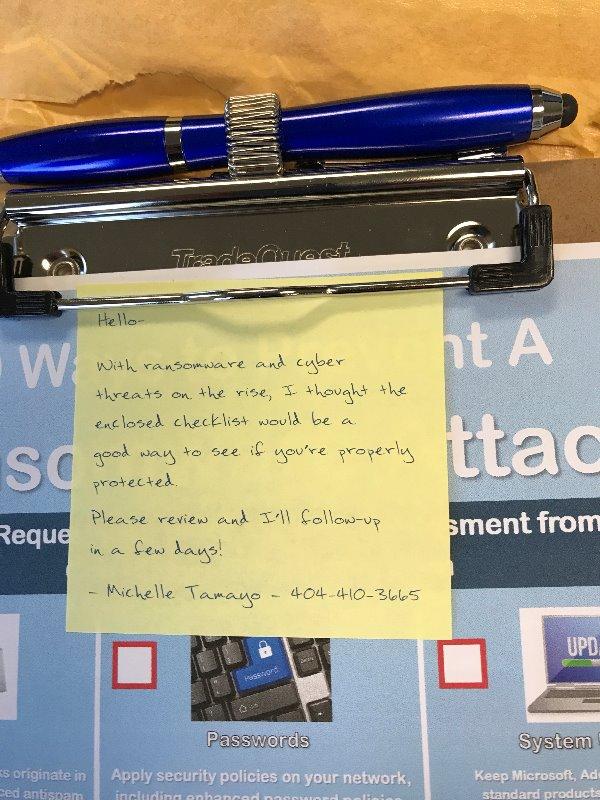 TradeQuest
Hello-
With ransomware and cyber
threats on the rise, I thought the
enclosed checklist would be a
good way to see if you're properly
protected.
Please review and I'll follow-up
in a few days!
- Michelle Tamayo - 404-410-3665
nt A
ttac
Reque
sment from
UPD
Password
Passwords
System
ks originate in
ced antispam
Apply security policies on your network,
including enhanced password policies
Keep Microsoft, Ado
standard products